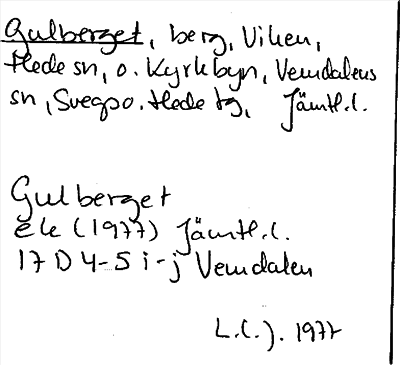 Gulberget, berg, Viken,
Hede sn, o. Kyrkbyn, Vemdalens
sn, Svegs o. Hede tg, Jämtl.l.
Gulberget
ek (1977) Jämtl.l.
17 D 4-5 i-j Vemdalen
L.C.J. 1977